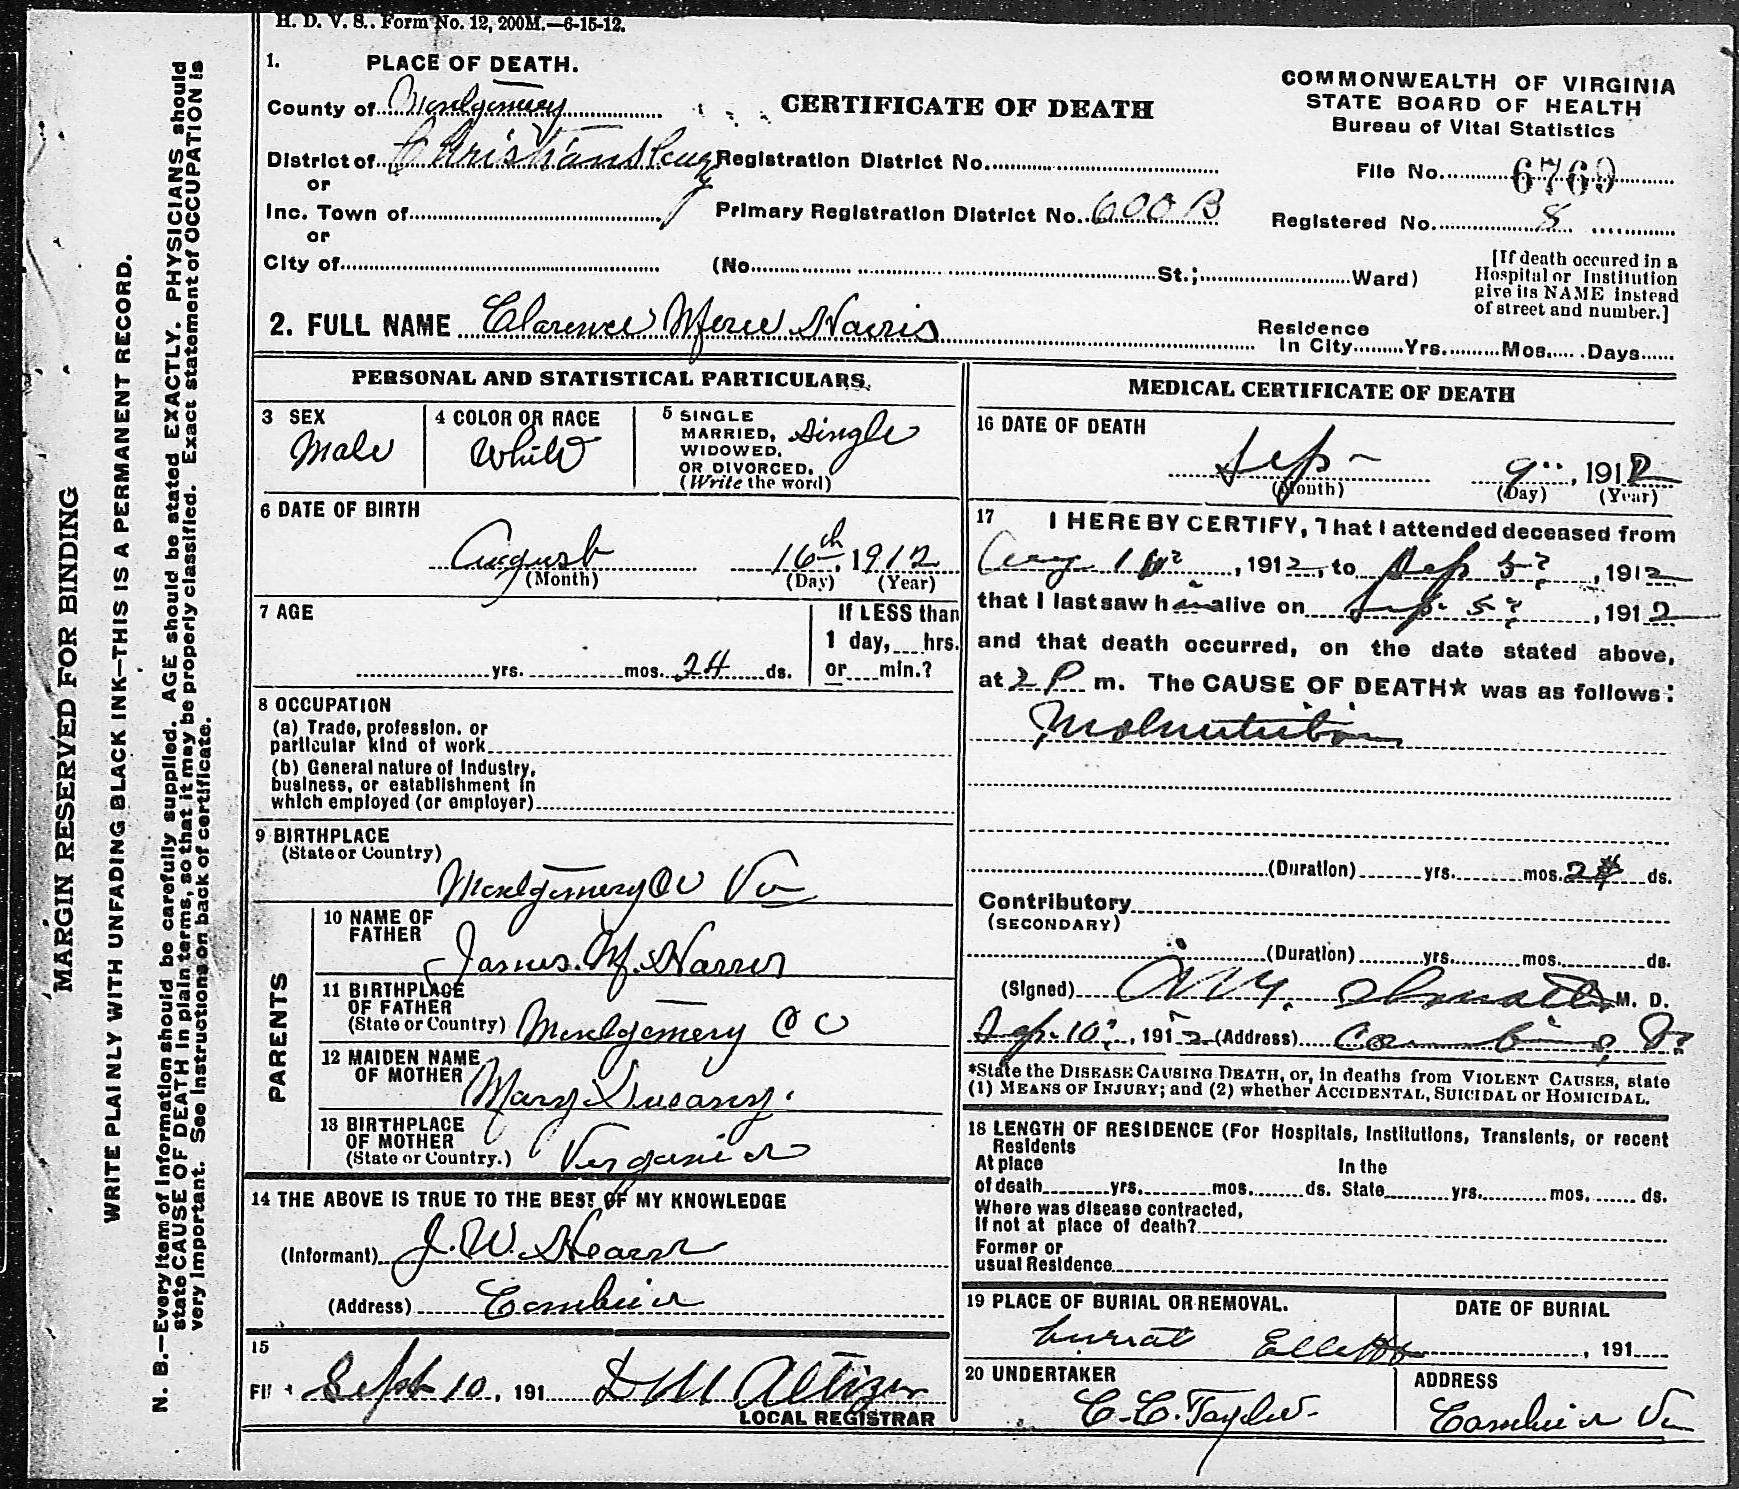 H. D. V. S.. Form No. 12, 200M.—6-15-12.
1. PLACE OF DEATH.
County of Montgomery
District of Christiansburg
or
Inc. Town of
or
City of
CERTIFICATE OF DEATH
Registration District No.
Primary Registration District No. 600B
(No. St.; Ward)
COMMONWEALTH OF VIRGINIA
STATE BOARD OF HEALTH
Bureau of Vital Statistics
File No. 6769
Registered No. 8
[If death occured in a
Hospital or Institution
give its NAME instead
of street and number.]
2. FULL NAME Clarence Harris
Residence
In City Yrs. Mos. Days
PERSONAL AND STATISTICAL PARTICULARS.
3 SEX
Male
4 COLOR OR RACE
White
5 SINGLE
MARRIED,
WIDOWED,
OR DIVORCED.
(Write the word)
Single
6 DATE OF BIRTH
August 16th, 1912
(Month) (Day) (Year)
7 AGE
yrs. mos. 24 ds.
If LESS than
1 day, hrs.
or min.?
8 OCCUPATION
(a) Trade, profession. or
particular kind of work
(b) General nature of Industry,
business, or establishment in
which employed (or employer)
9 BIRTHPLACE
(State or Country)
Montgomery Co Va
PARENTS
10 NAME OF
FATHER
James. M. Harris
11 BIRTHPLACE
OF FATHER
(State or Country) Montgomery Co
12 MAIDEN NAME
OF MOTHER
Mary
13 BIRTHPLACE
OF MOTHER
(State or Country.) Verginia
14 THE ABOVE IS TRUE TO THE BEST OF MY KNOWLEDGE
(Informant) J. W. Hearn
(Address) Cambria
15
Sept 10, 191 D M Altizer
LOCAL REGISTRAR
MEDICAL CERTIFICATE OF DEATH
16 DATE OF DEATH
Sep 9, 1912
(Month) (Day) (Year)
17 I HEREBY CERTIFY, That I attended deceased from
Aug 16, 1912, to Sep 5, 1912
that I last saw him alive on Sep. 5, 1912
and that death occurred, on the date stated above,
at 2 P m. The CAUSE OF DEATH★ was as follows:
Malnutrition
(Duration) yrs. mos. 24 ds.
Contributory
(SECONDARY)
(Duration) yrs. mos. ds.
(Signed) M. D.
Sep. 10, 1912 (Address) Cambria, Va
*State the DISEASE CAUSING DEATH, or, in deaths from VIOLENT CAUSES, state
(1) MEANS OF INJURY; and (2) whether ACCIDENTAL, SUICIDAL or HOMICIDAL.
18 LENGTH OF RESIDENCE (For Hospitals, Institutions, Transients, or recent
Residents
At place In the
of death yrs. mos. ds. State yrs. mos. ds.
Where was disease contracted,
If not at place of death?
Former or
usual Residence
19 PLACE OF BURIAL OR REMOVAL.
Ellett
DATE OF BURIAL
, 191
20 UNDERTAKER
C. C. Taylor.
ADDRESS
Cambria Va
MARGIN RESERVED FOR BINDING
WRITE PLAINLY WITH UNFADING BLACK INK—THIS IS A PERMANENT RECORD.
N. B.—Every item of information should be carefully supplied. AGE should be stated EXACTLY. PHYSICIANS should
state CAUSE OF DEATH in plain terms, so that it may be properly classified. Exact statement of OCCUPATION is
very important. See instructions on back of certificate.